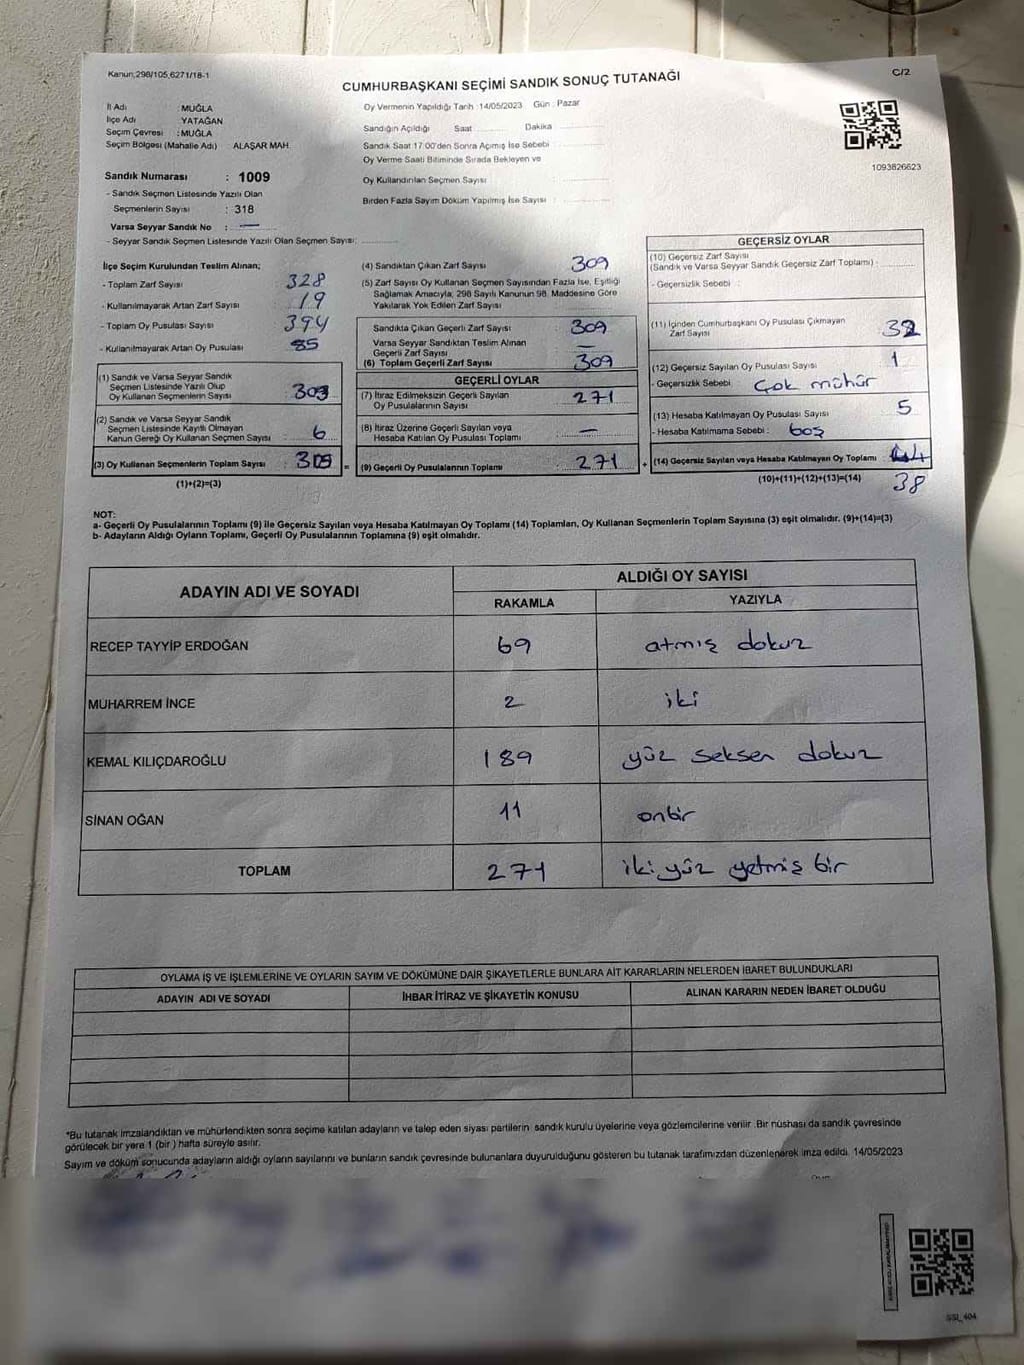 Kanun;298/105,6271/18-1
CUMHURBAŞKANI SEÇİMİ SANDIK SONUÇ TUTANAĞI
C/2
İl Adı : MUĞLA
İlçe Adı YATAĞAN
Seçim Çevresi : MUĞLA
Seçim Bölgesi (Mahalle Adı) ALAŞAR MAH.
Oy Vermenin Yapıldığı Tarih :14/05/2023 Gün : Pazar
Sandığın Açıldığı Saat Dakika
Sandık Saat 17:00'den Sonra Açımış İse Sebebi
Oy Verme Saati Bitiminde Sırada Bekleyen ve
Oy Kullandırılan Seçmen Sayısı
Birden Fazla Sayım Döküm Yapılmış İse Sayısı :
1093826623
Sandık Numarası : 1009
- Sandık Seçmen Listesinde Yazılı Olan
Seçmenlerin Sayısı : 318
Varsa Seyyar Sandık No : —
- Seyyar Sandık Seçmen Listesinde Yazılı Olan Seçmen Sayısı:
İlçe Seçim Kurulundan Teslim Alınan;
- Toplam Zarf Sayısı 328
- Kullanılmayarak Artan Zarf Sayısı 19
- Toplam Oy Pusulası Sayısı 394
- Kullanılmayarak Artan Oy Pusulası 85
(1) Sandık ve Varsa Seyyar Sandık
Seçmen Listesinde Yazılı Olup
Oy Kullanan Seçmenlerin Sayısı : 303
(2) Sandık ve Varsa Seyyar Sandık
Seçmen Listesinde Kayıtlı Olmayan
Kanun Gereği Oy Kullanan Seçmen Sayısı : 6
(3) Oy Kullanan Seçmenlerin Toplam Sayısı : =
(1)+(2)=(3)
(4) Sandıktan Çıkan Zarf Sayısı 309
(5) Zarf Sayısı Oy Kullanan Seçmen Sayısından Fazla İse, Eşitliği
Sağlamak Amacıyla, 298 Sayılı Kanunun 98. Maddesine Göre
Yakılarak Yok Edilen Zarf Sayısı
Sandıkta Çıkan Geçerli Zarf Sayısı : 309
Varsa Seyyar Sandıktan Teslim Alınan
Geçerli Zarf Sayısı —
(6) Toplam Geçerli Zarf Sayısı 309
GEÇERLİ OYLAR
(7) İtiraz Edilmeksizin Geçerli Sayılan
Oy Pusulalarının Sayısı 271
(8) İtiraz Üzerine Geçerli Sayılan veya
Hesaba Katılan Oy Pusulası Toplamı —
(9) Geçerli Oy Pusulalarının Toplamı 271 +
GEÇERSİZ OYLAR
(10) Geçersiz Zarf Sayısı
(Sandık ve Varsa Seyyar Sandık Geçersiz Zarf Toplamı) :
- Geçersizlik Sebebi :
(11) İçinden Cumhurbaşkanı Oy Pusulası Çıkmayan
Zarf Sayısı 32
(12) Geçersiz Sayılan Oy Pusulası Sayısı 1
- Geçersizlik Sebebi: Çok mühür
(13) Hesaba Katılmayan Oy Pusulası Sayısı 5
- Hesaba Katılmama Sebebi : boş
(14) Geçersiz Sayılan veya Hesaba Katılmayan Oy Toplamı :
(10)+(11)+(12)+(13)=(14) 38
NOT:
a- Geçerli Oy Pusulalarının Toplamı (9) ile Geçersiz Sayılan veya Hesaba Katılmayan Oy Toplamı (14) Toplamları, Oy Kullanan Seçmenlerin Toplam Sayısına (3) eşit olmalıdır. (9)+(14)=(3)
b- Adayların Aldığı Oyların Toplamı, Geçerli Oy Pusulalarının Toplamına (9) eşit olmalıdır.
ADAYIN ADI VE SOYADI
ALDIĞI OY SAYISI
RAKAMLA YAZIYLA
RECEP TAYYİP ERDOĞAN 69 atmış dokuz
MUHARREM İNCE 2 iki
KEMAL KILIÇDAROĞLU 189 yüz seksen dokuz
SİNAN OĞAN 11 onbir
TOPLAM 271 iki yüz yetmiş bir
OYLAMA İŞ VE İŞLEMLERİNE VE OYLARIN SAYIM VE DÖKÜMÜNE DAİR ŞİKAYETLERLE BUNLARA AİT KARARLARIN NELERDEN İBARET BULUNDUKLARI
ADAYIN ADI VE SOYADI İHBAR İTİRAZ VE ŞİKAYETİN KONUSU ALINAN KARARIN NEDEN İBARET OLDUĞU
*Bu tutanak imzalandıktan ve mühürlendikten sonra seçime katılan adayların ve talep eden siyasi partilerin sandık kurulu üyelerine veya gözlemcilerine verilir. Bir nüshası da sandık çevresinde
görülecek bir yere 1 (bir ) hafta süreyle asılır.
Sayım ve döküm sonucunda adayların aldığı oyların sayılarını ve bunların sandık çevresinde bulunanlara duyurulduğunu gösteren bu tutanak tarafımızdan düzenlenerek imza edildi. 14/05/2023